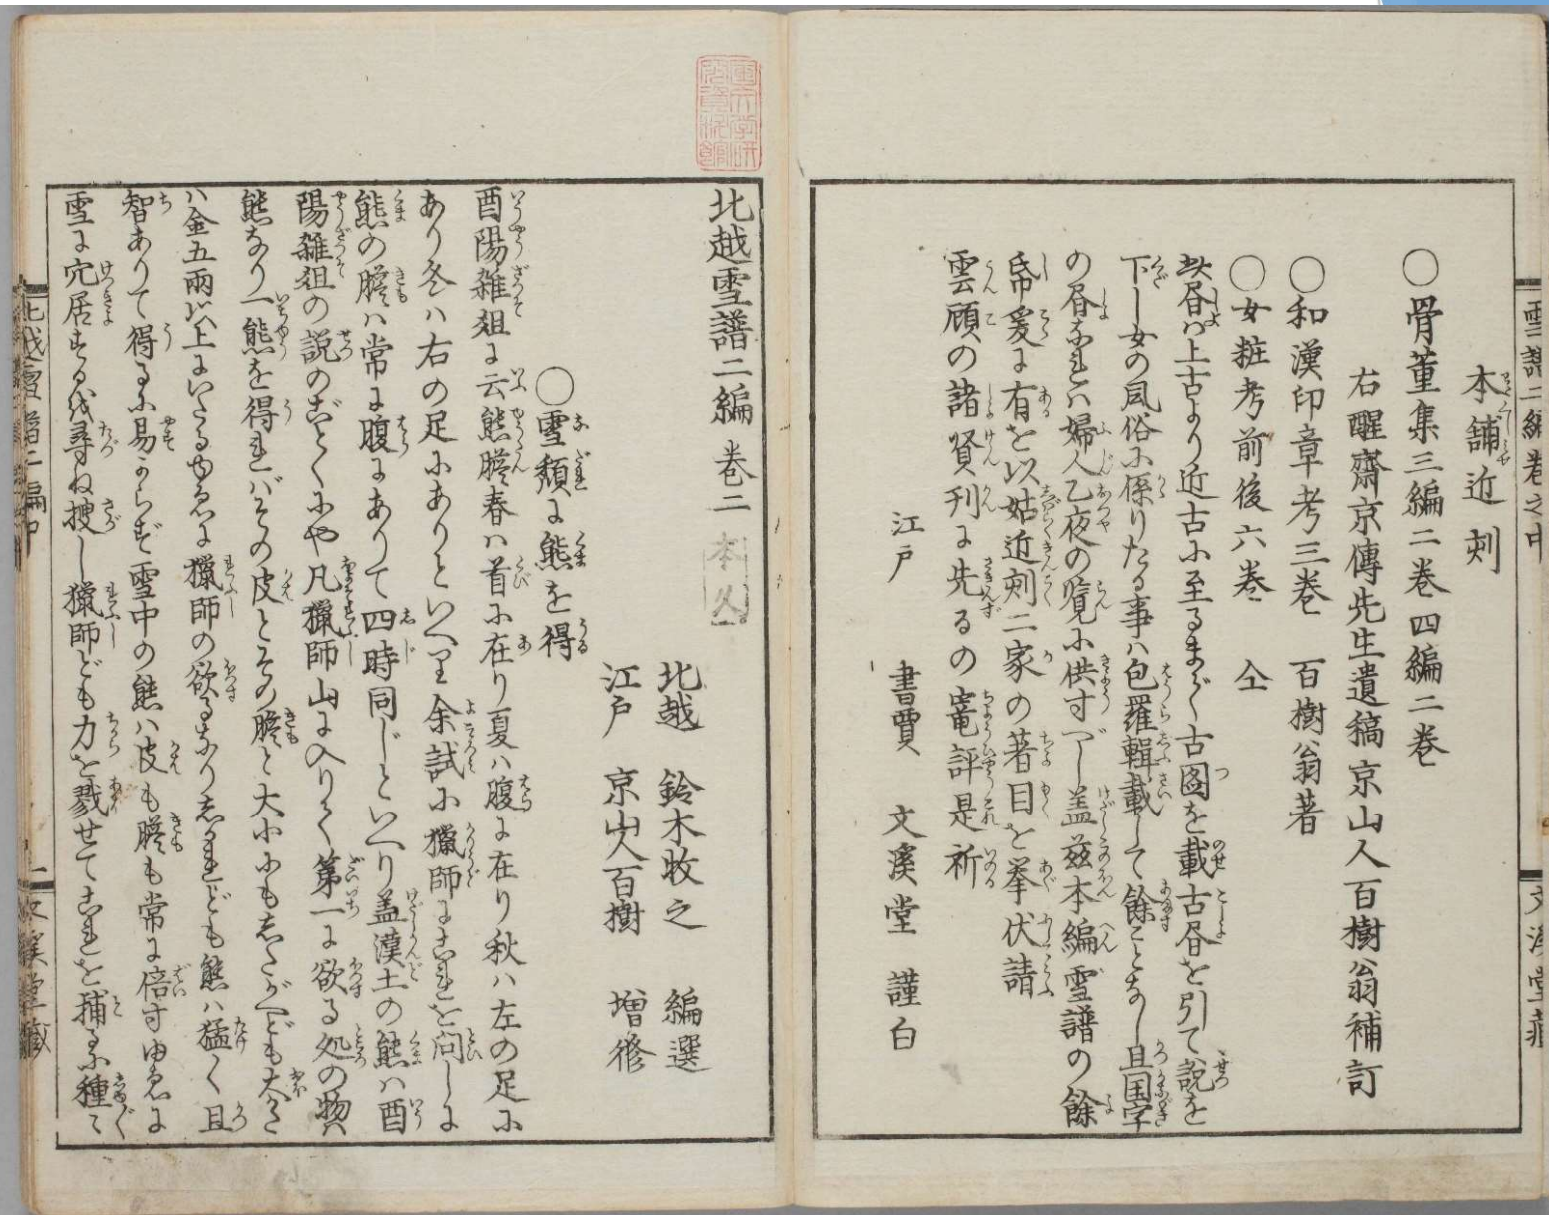 雪譜二編巻之中
文溪堂蔵
本舗近刻
○骨董集三編二巻四編二巻
右醒齋京傳先生遺稿京山人百樹翁補訂
○和漢印章考三巻　百樹翁著
○女粧考前後六巻　仝
此書ハ上古より近古に至るまで古図を載古書を引て説を
下し女の風俗に係りたる事ハ包羅輯載して餘ことなし且国字
の書なれハ婦人乙夜の覧に供すべし盖茲本編雪譜の餘
帋爰に有を以姑近刻二家の著目を挙伏請
雲顧の諸賢刊に先るの寵評是祈
江戸　書賈　文溪堂　謹白
北越雪譜二編巻二
北越　鈴木牧之　編選
江戸　京山人百樹　増修
○雪頽に熊を得
酉陽雑俎に云熊膽春ハ首に在り夏ハ腹に在り秋ハ左の足に
あり冬ハ右の足にありといへり余試に獵師にこれを問しに
熊の膽ハ常に腹にありて四時同じといへり盖漢土の熊ハ酉
陽雑俎の説のごとくにや凡獵師山に入りて第一に欲る処の物ハ
熊なり一熊を得れバその皮とその膽と大小にもしたがへども大かた
ハ金五両以上にいたるゆゑに獵師の欲るなりしかれども熊ハ猛く且
智ありて得るに易からず雪中の熊ハ皮も膽も常に倍すゆゑに
雪に穴居するを尋ね捜し獵師ども力を戮せてこれを捕るに種〻
北越雪譜二編中
文溪堂蔵